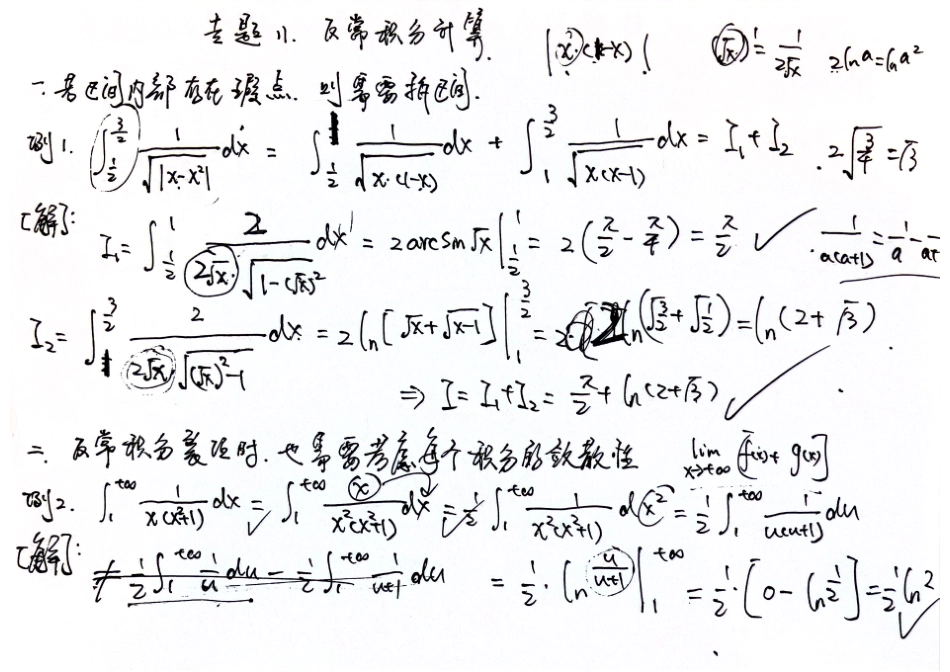 专题11. 反常积分计算.
|x·(1-x)|
(√x)' = 1/(2√x)  2ln a = ln a²
一. 若区间内部存在瑕点. 则需要拆区间.
例1. ∫_{1/2}^{3/2} 1/√|x-x²| dx = ∫_{1/2}^{1} 1/√(x·(1-x)) dx + ∫_{1}^{3/2} 1/√(x(x-1)) dx = I₁ + I₂  2√(3/4) = √3
[解]:
I₁ = ∫_{1/2}^{1} 2/(2√x·√(1-(√x)²)) dx = 2arcsin√x |_{1/2}^{1} = 2(π/2 - π/4) = π/2 ✓  1/(a(a+1)) = 1/a - 1/a+
I₂ = ∫_{1}^{3/2} 2/(2√x·√((√x)²-1)) dx = 2ln[√x+√(x-1)] |_{1}^{3/2} = 2ln(√(3/2)+√(1/2)) = ln(2+√3)
⇒ I = I₁+I₂ = π/2 + ln(2+√3) ✓
二. 反常积分裂项时. 也需要考虑每个积分的敛散性  lim_{x→+∞} [f(x)+g(x)]
例2. ∫_{1}^{+∞} 1/(x(x²+1)) dx = ∫_{1}^{+∞} x/(x²(x²+1)) dx = 1/2 ∫_{1}^{+∞} 1/(x²(x²+1)) dx² = 1/2 ∫_{1}^{+∞} 1/(u(u+1)) du
[解]:
≠ 1/2 ∫_{1}^{+∞} 1/u du - 1/2 ∫_{1}^{+∞} 1/(u+1) du = 1/2·ln u/(u+1) |_{1}^{+∞} = 1/2·[0 - ln 1/2] = 1/2 ln2 ✓